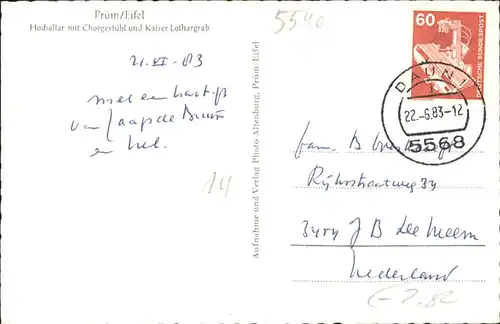 Prüm/Eifel
Hochaltar mit Chorgestühl und Kaiser Lothargrab
5540
21-VI-83
met een hart.
van Jaap de Bruin
en
14
Aufnahme und Verlag Photo Altenburg, Prüm-Eifel
60
DEUTSCHE BUNDESPOST
DAUN 1
22.-6.83-12
5568
fam. B
Rijksstraatweg 34
J B de Meern
Nederland